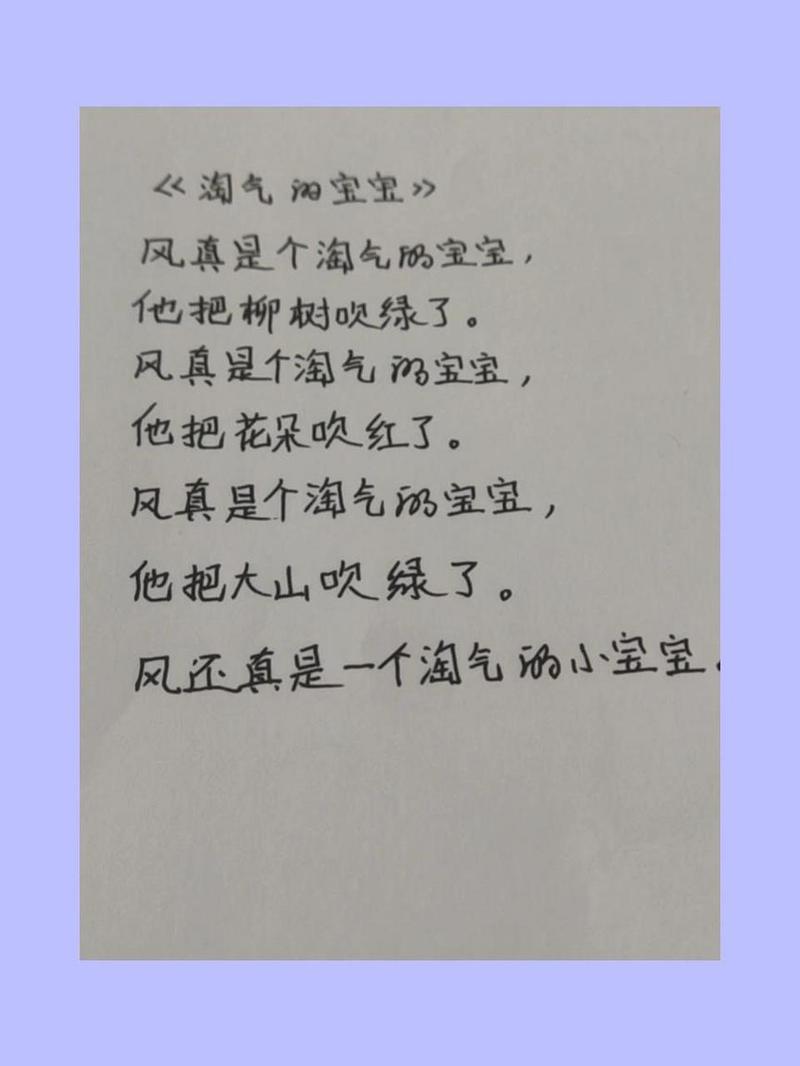 《淘气的宝宝》
风真是个淘气的宝宝，
他把柳树吹绿了。
风真是个淘气的宝宝，
他把花朵吹红了。
风真是个淘气的宝宝，
他把大山吹绿了。
风还真是一个淘气的小宝宝。